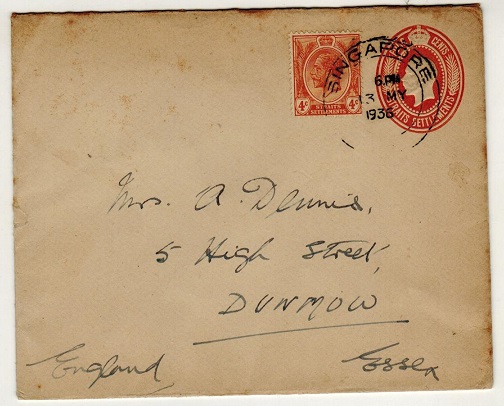 SINGAPORE
6. PM
3 MY
1936
CENTS
STRAITS SETTLEMENTS
4c 4c
STRAITS
SETTLEMENTS
Mrs. A. Dennis,
5 High Street,
DUNMOW
England Essex